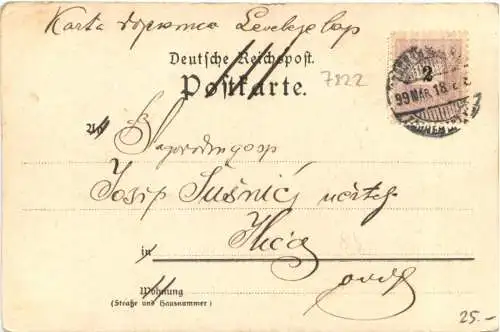 Karta dopisnica Levelező lap
Deutsche Reichspost.
Postkarte.
7822
2
99 MAR. 18
An
Josip Sušnić
Ilica
in
ovdje
Wohnung
(Straße und Hausnummer)
25.-